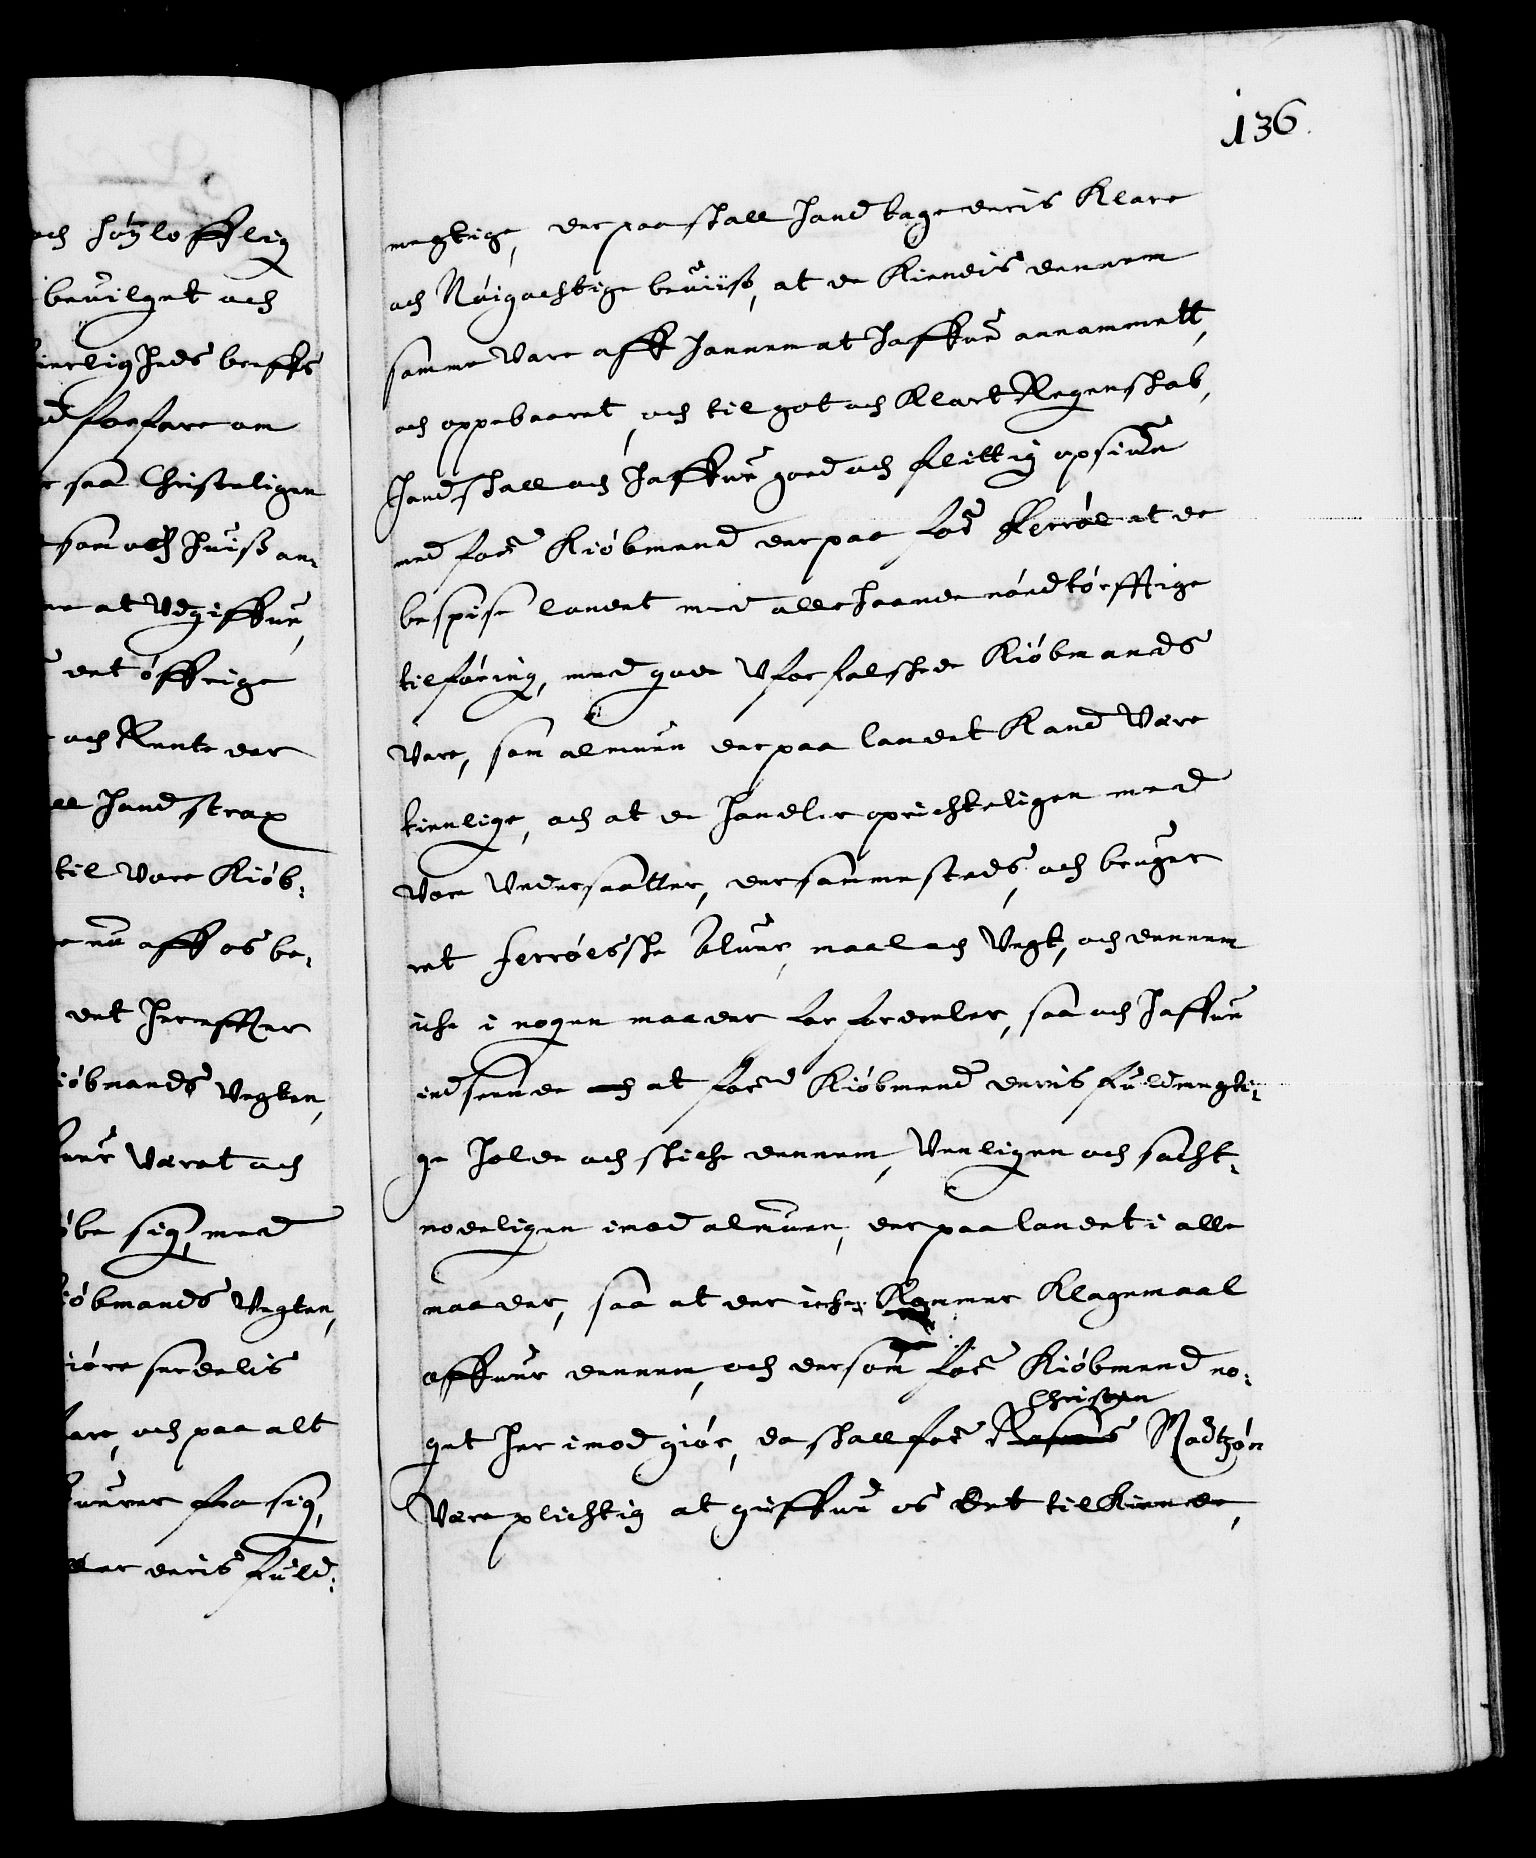 136.
och höylofflig
beuilget och
ierligheds breffs
forfare om
saa Christeligen
som och huiss an-
at Udgiffue,
det öffrige
och Rente der
hand strax
til Vore Kiöb-
nu aff os be-
det herefter
iöbmands Vegten,
Veret och
öbe sig, med
iöbmands Vegten,
iöre serdelis
och paa alt
fra sig,
deris fuld-
megtige, der paa skall hand tage deris Klare
och Nöigachtige beuiiss, at de Kiendis dennem
samme Vare aff hannem at haffue annammett,
och oppebaaret, och til got och Klart Regenskab,
Hand skall och haffue goed och flittig opsiun
med forne Kiöbmend der paa for Ferröe at de
bespise landet med allehaande nöedtörfftige
tilföring, med gode Uforfalskede Kiöbmands
Vare, som almuen der paa landet Kand Være
tienlige, och at de handler oprichteligen med
Vore Undersaatter, dersammesteds, och bruger
ret Ferröeske alne, maal och Vegt, och dennem
iche i nogen maader for fordeeler, saa och haffue
indseende och at forne Kiöbmend deris fuldmegti-
ge holde och skicke dennem, Venligen och sacht-
modeligen imod almuen, der paa landet i alle
maader, saa at der icke Kommer Klagemaal
offuer dennem, och dersom forne Kiöbmend no-
get her imod giör, da skall forne Rasmus Christen Madtzön
Vere plichtig at giffue os det tilkiende,